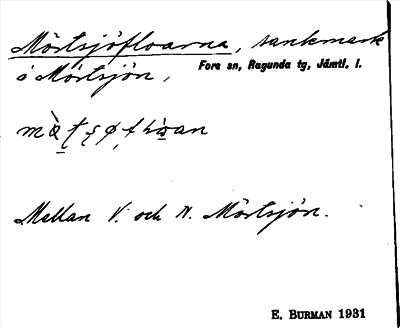 Mörtsjöfloarna, sankmark
å Mörtsjön, Fors sn, Ragunda tg, Jämtl. l.
Mellan V. och N. Mörtsjön.
E. BURMAN 1931